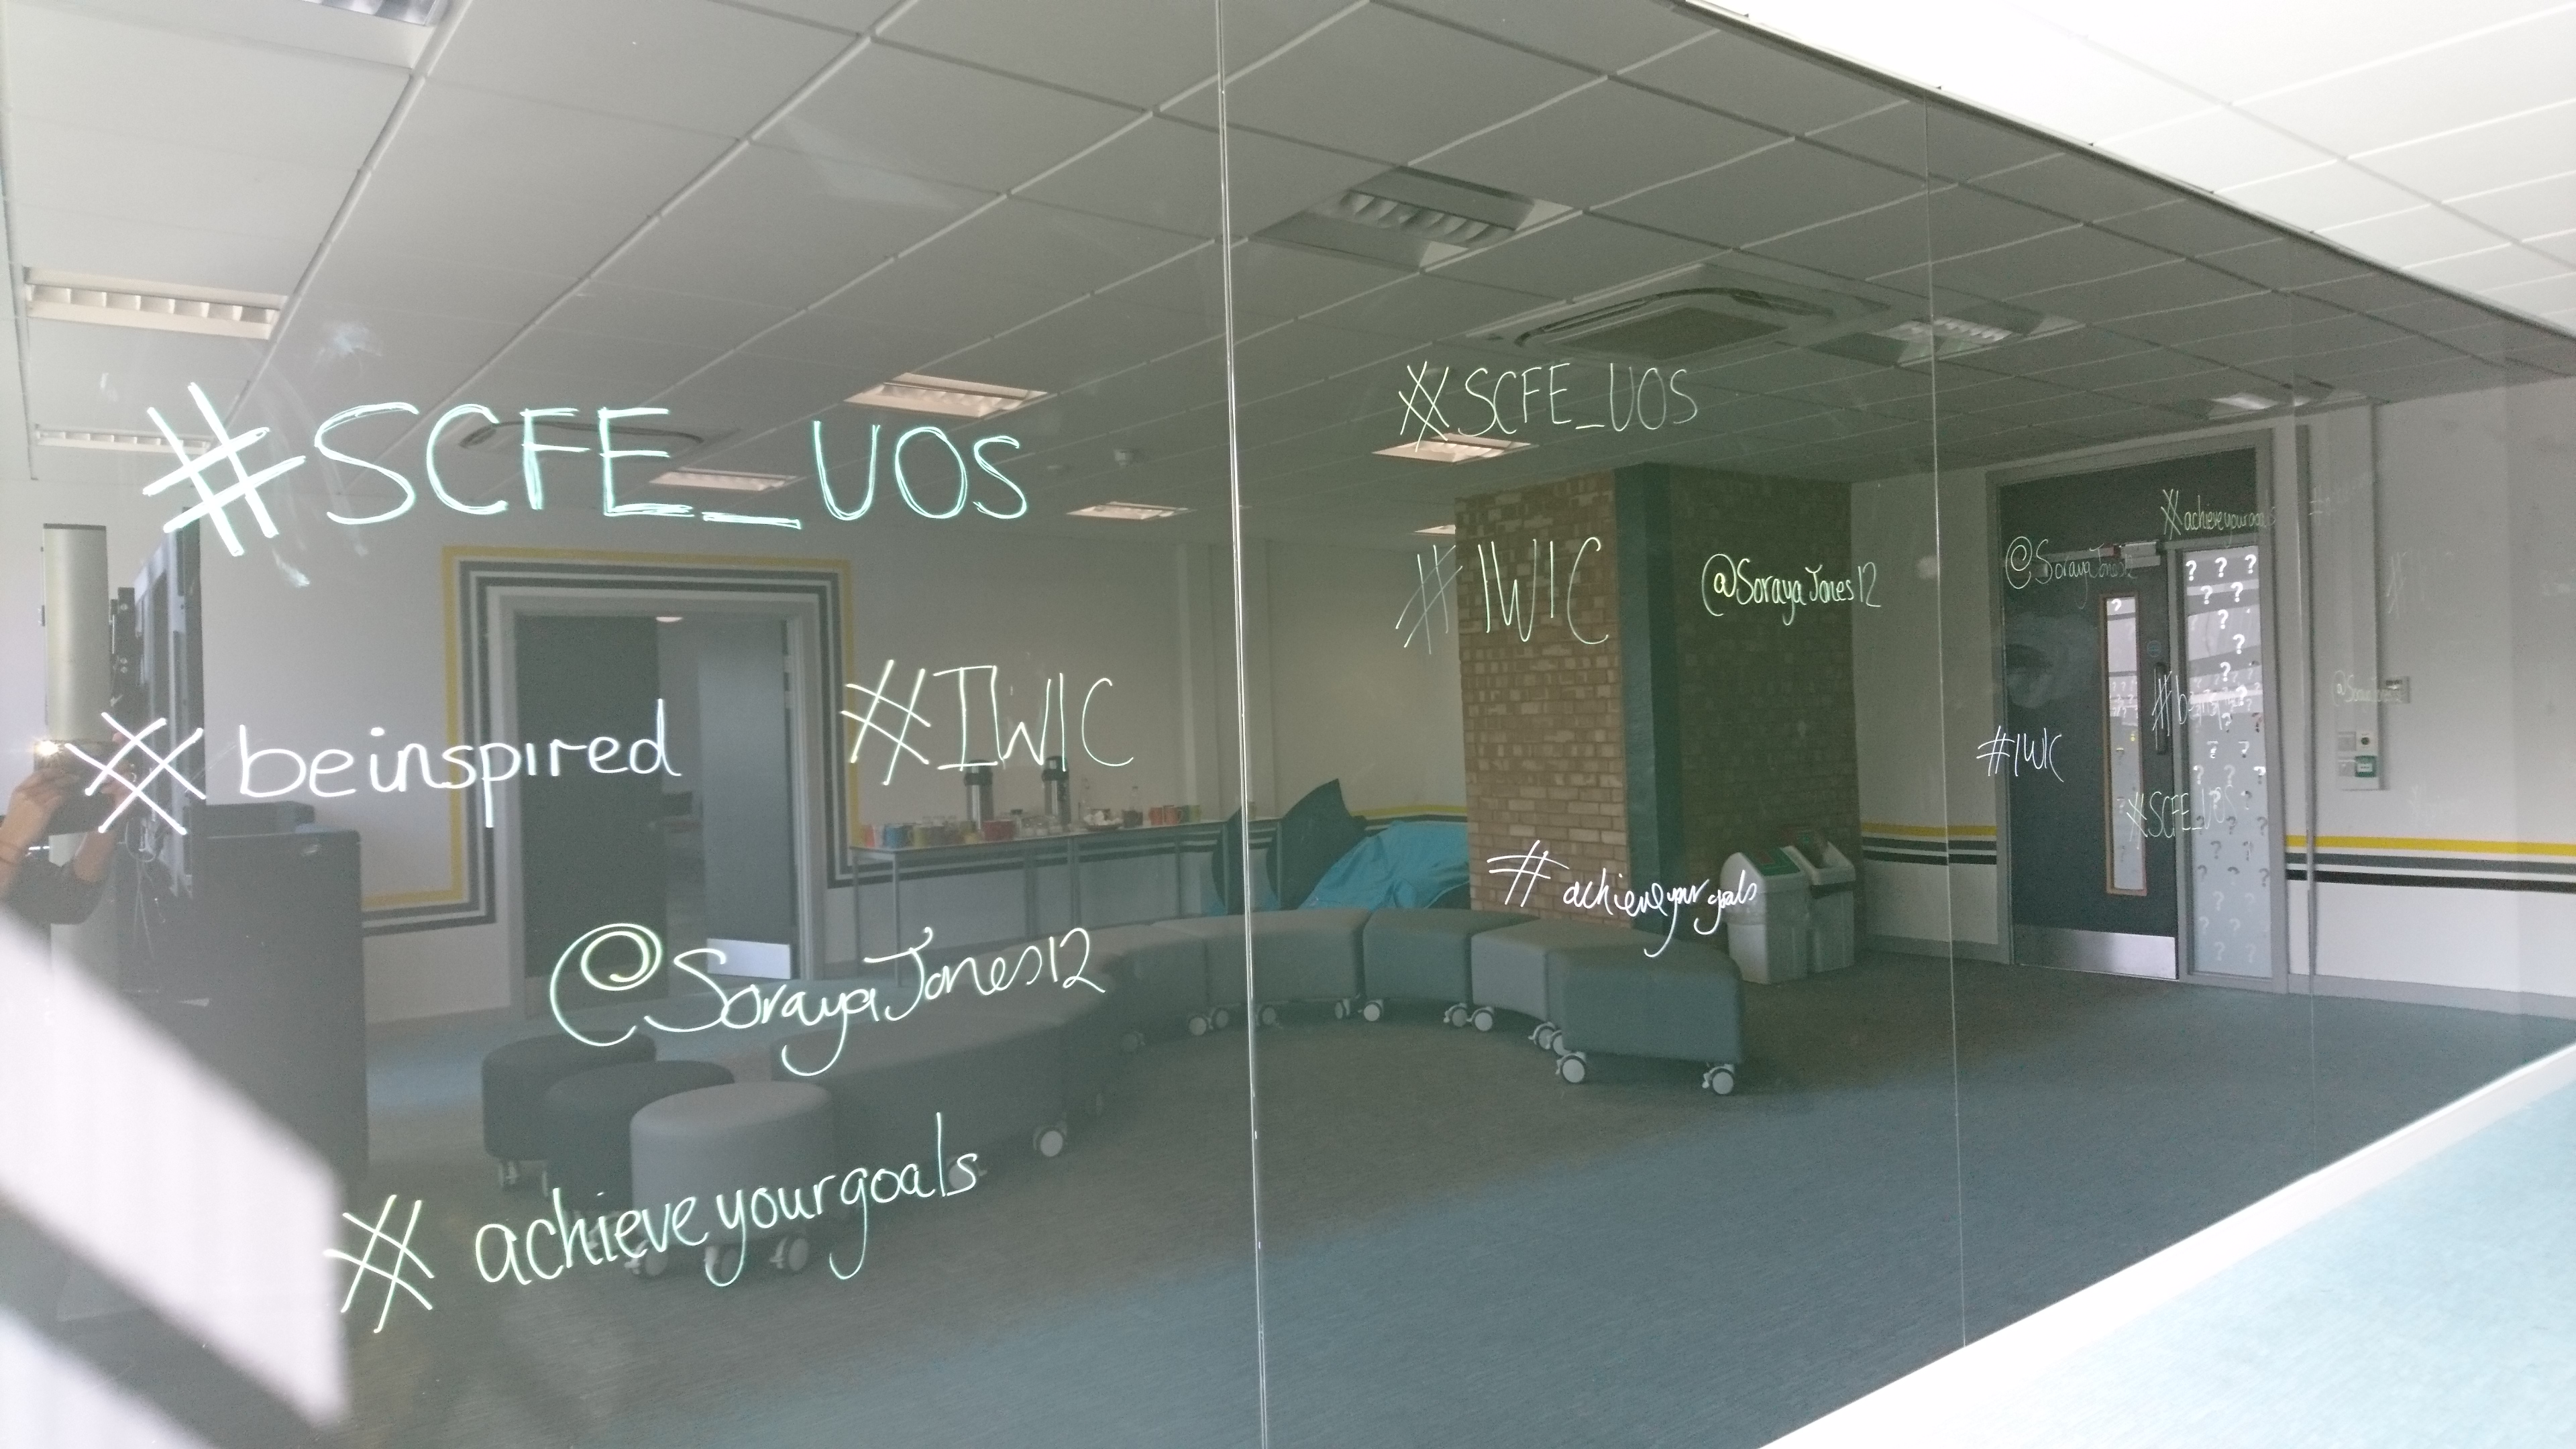 #SCFE_UOS
#beinspired
#IWIC
@SorayaJones12
#achieveyourgoals
#SCFE_UOS
#IWIC
@SorayaJones12
#achieveyourgoals
#achieveyourgoals
@SorayaJones12
#IWIC
#SCFE_UOS